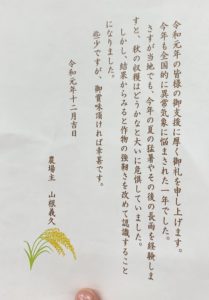 令和元年の皆様の御支援に厚く御礼を申し上げます。
今年も全国的に異常気象に悩まされた一年でした。
さすが当地でも、今年の夏の猛暑やその後の長雨を経験しま
すと、秋の収穫はどうかなと大いに危惧していました。
しかし、結果からみると作物の強靭さを改めて認識すること
になりました。
些少ですが、御賞味頂ければ幸甚です。
令和元年十二月吉日
農場主 山根義久